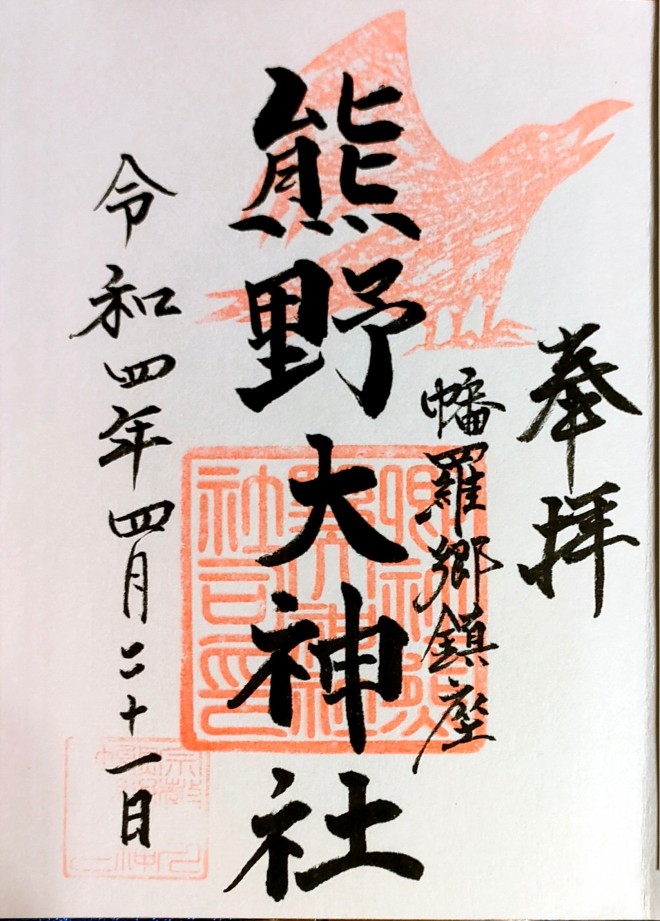 奉拝
幡羅郷鎮座
熊野大神社
令和四年四月二十一日